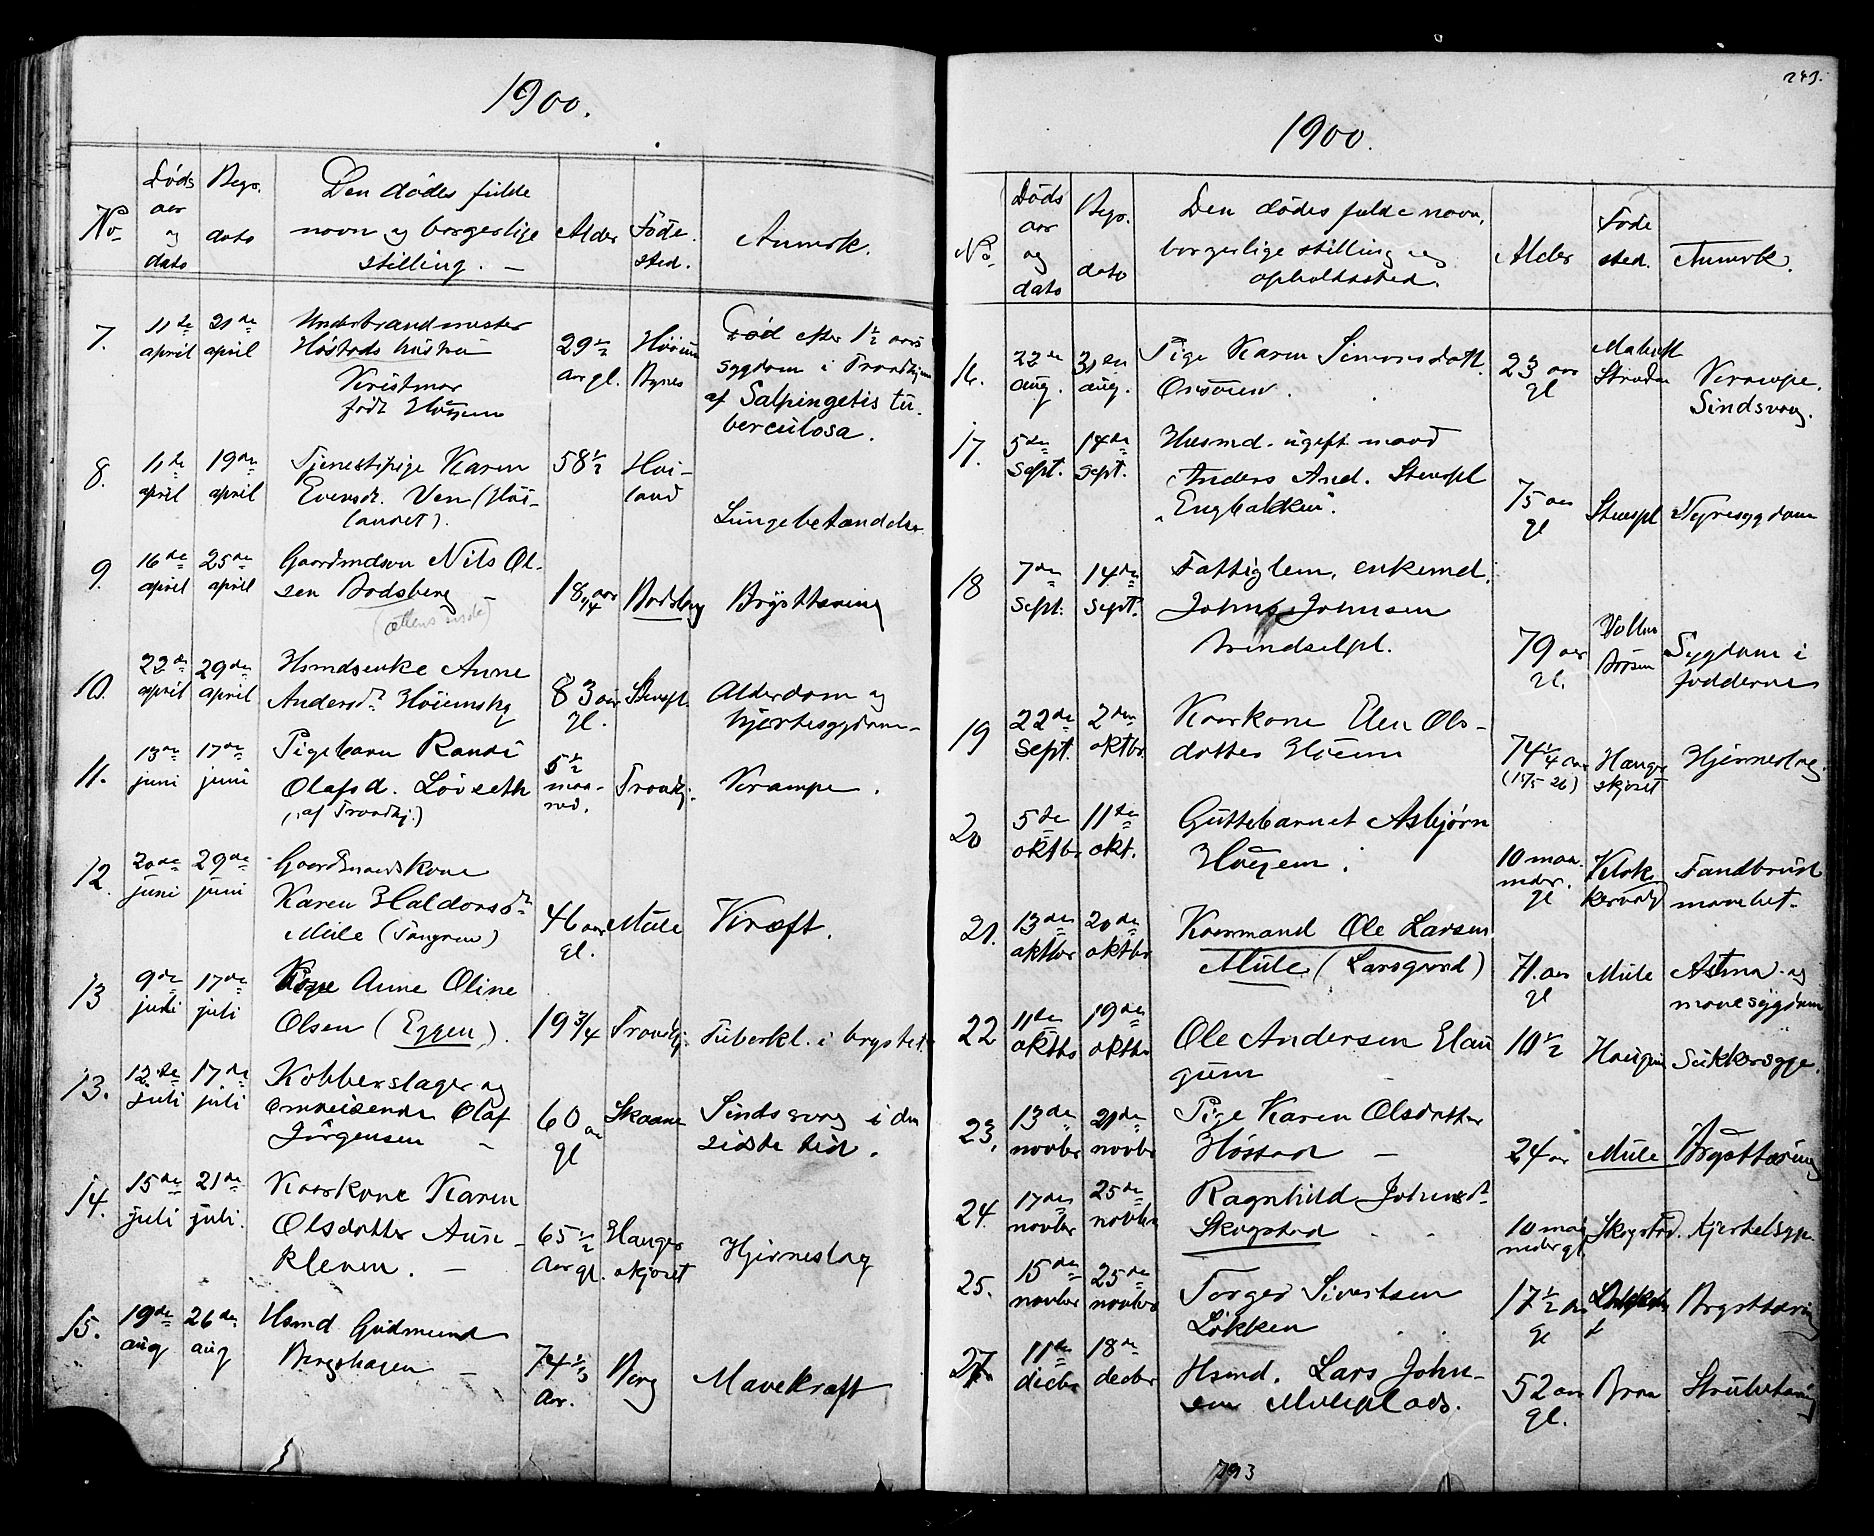 1900.
No
Døds aar og dato
Begr. dato
Den dødes fulde navn og borgerlige stilling. —
Alder
Føde sted.
Anmærk.
7.
11te april
21de april
Underbrandmester
Høstads hustru
født Høgem
29 1/2 aar gl.
Bynes
Død efter 1 1/2 aars
sygdom i Trondhjem
af Salpingetis tu-
berculosa.
8.
11te april
19de april
Tjenestepige Karen
Evensdt. Ven (Høi-
landet).
58 1/2
Høi-
land
Lungebetændelse
9.
16de april
25de april
Gaardmdsøn Nils Ol-
sen Bodsberg —
18 1/4 aar
Bodsberg
Brysttæring
10.
22de april
29de april
Hsmdsenke Anne
Andersdt. Høiemshg
83 aar gl.
Stenspl.
Alderdom og
hjertesygdom —
11.
13de juni
17de juni
Pigebarn Randi
Olafsd. Løvseth
(af Trondhj.)
5 1/2 maa-
ned.
Trondhj.
Krampe.
12.
20de juni
29de juni
Gaardmandskone
Karen Haldorsdt.
Mule
46 aar gl.
Mule
Kræft.
13
9de juli
17de juli
Pige Anne Oline
Olsen (Eggen).
19 3/4
Trondhj.
Tuberkl. i brystet.
13.
12te juli
17de juli
Kobberslager og
omreisende Olaf
Jørgensen —
60 aar gl
Skaane
Sindssvag i den
sidste tid.
14.
15de juli
21de juli.
Kaarkone Karen
Olsdatter Aun-
kleven. —
65 1/2 aar gl.
Hanger
skjøret
Hjerneslag
15.
19de aug
26de aug
Hsmd. Gudmund
Bergshagen —
74 1/3 aar.
Berg
Mavekræft
243.
1900.
No.
Døds aar og dato
Begr. dato
Den dødes fulde navn,
borgerlige stilling og
opholdssted.
Alder
Føde sted.
Anmærk.
16.
22de aug.
30te aug.
Pige Karen Simonsdatt.
23 aar gl
Krampe.
Sindsvag.
17.
5te sept.
14de sept.
Husmd. ugift mand
Anders And. Stenspl
„Engbakken“.
75 aar gl
Stenspl
Nyresygdom
18
7de sept.
14de sept.
Fattiglem, enkemd.
Johns Johnsen
Brendselpl.
79 aar gl.
Sygdom i
fødderne
19
22de sept.
2den oktbr
Kaarkone Elen Ols-
datter Høiem
74 1/4 aar
(15/5 26)
Hanger
skjøret
Hjerneslag.
20
5te oktbr
11te okt.
Guttebarnet Asbjørn
Høgem.
10 maa
neder. gl
Tandbrud
21.
13de oktbr
20de oktbr
Kaarmand Ole Larsen
Mule (Larsgaard)
71 aar gl
Mule
Astma og
mavesygdom
22
11te oktbr
19de oktbr
Ole Andersen Hau
gum —
10 1/2
Haugum
Sukkersyge.
23.
13de novbr
21de novbr
Pige Karen Olsdatter
Høstad —
24 aar
Mule
Brysttæring
24.
17de novbr
25de novbr
Ragnhild Johnsdt.
Skogstad
10 maa
neder gl.
Skogstad.
Kjertelsyge
25.
15de novbr
25de novbr
Torger Sivertsen
Løkken
17 1/2 aar gl
Brysttæring
27.
11te decbr
18de decbr
Hsmd. Lars John-
sen Muleplads.
52 aar gl.
Braa
Strubetæring
793